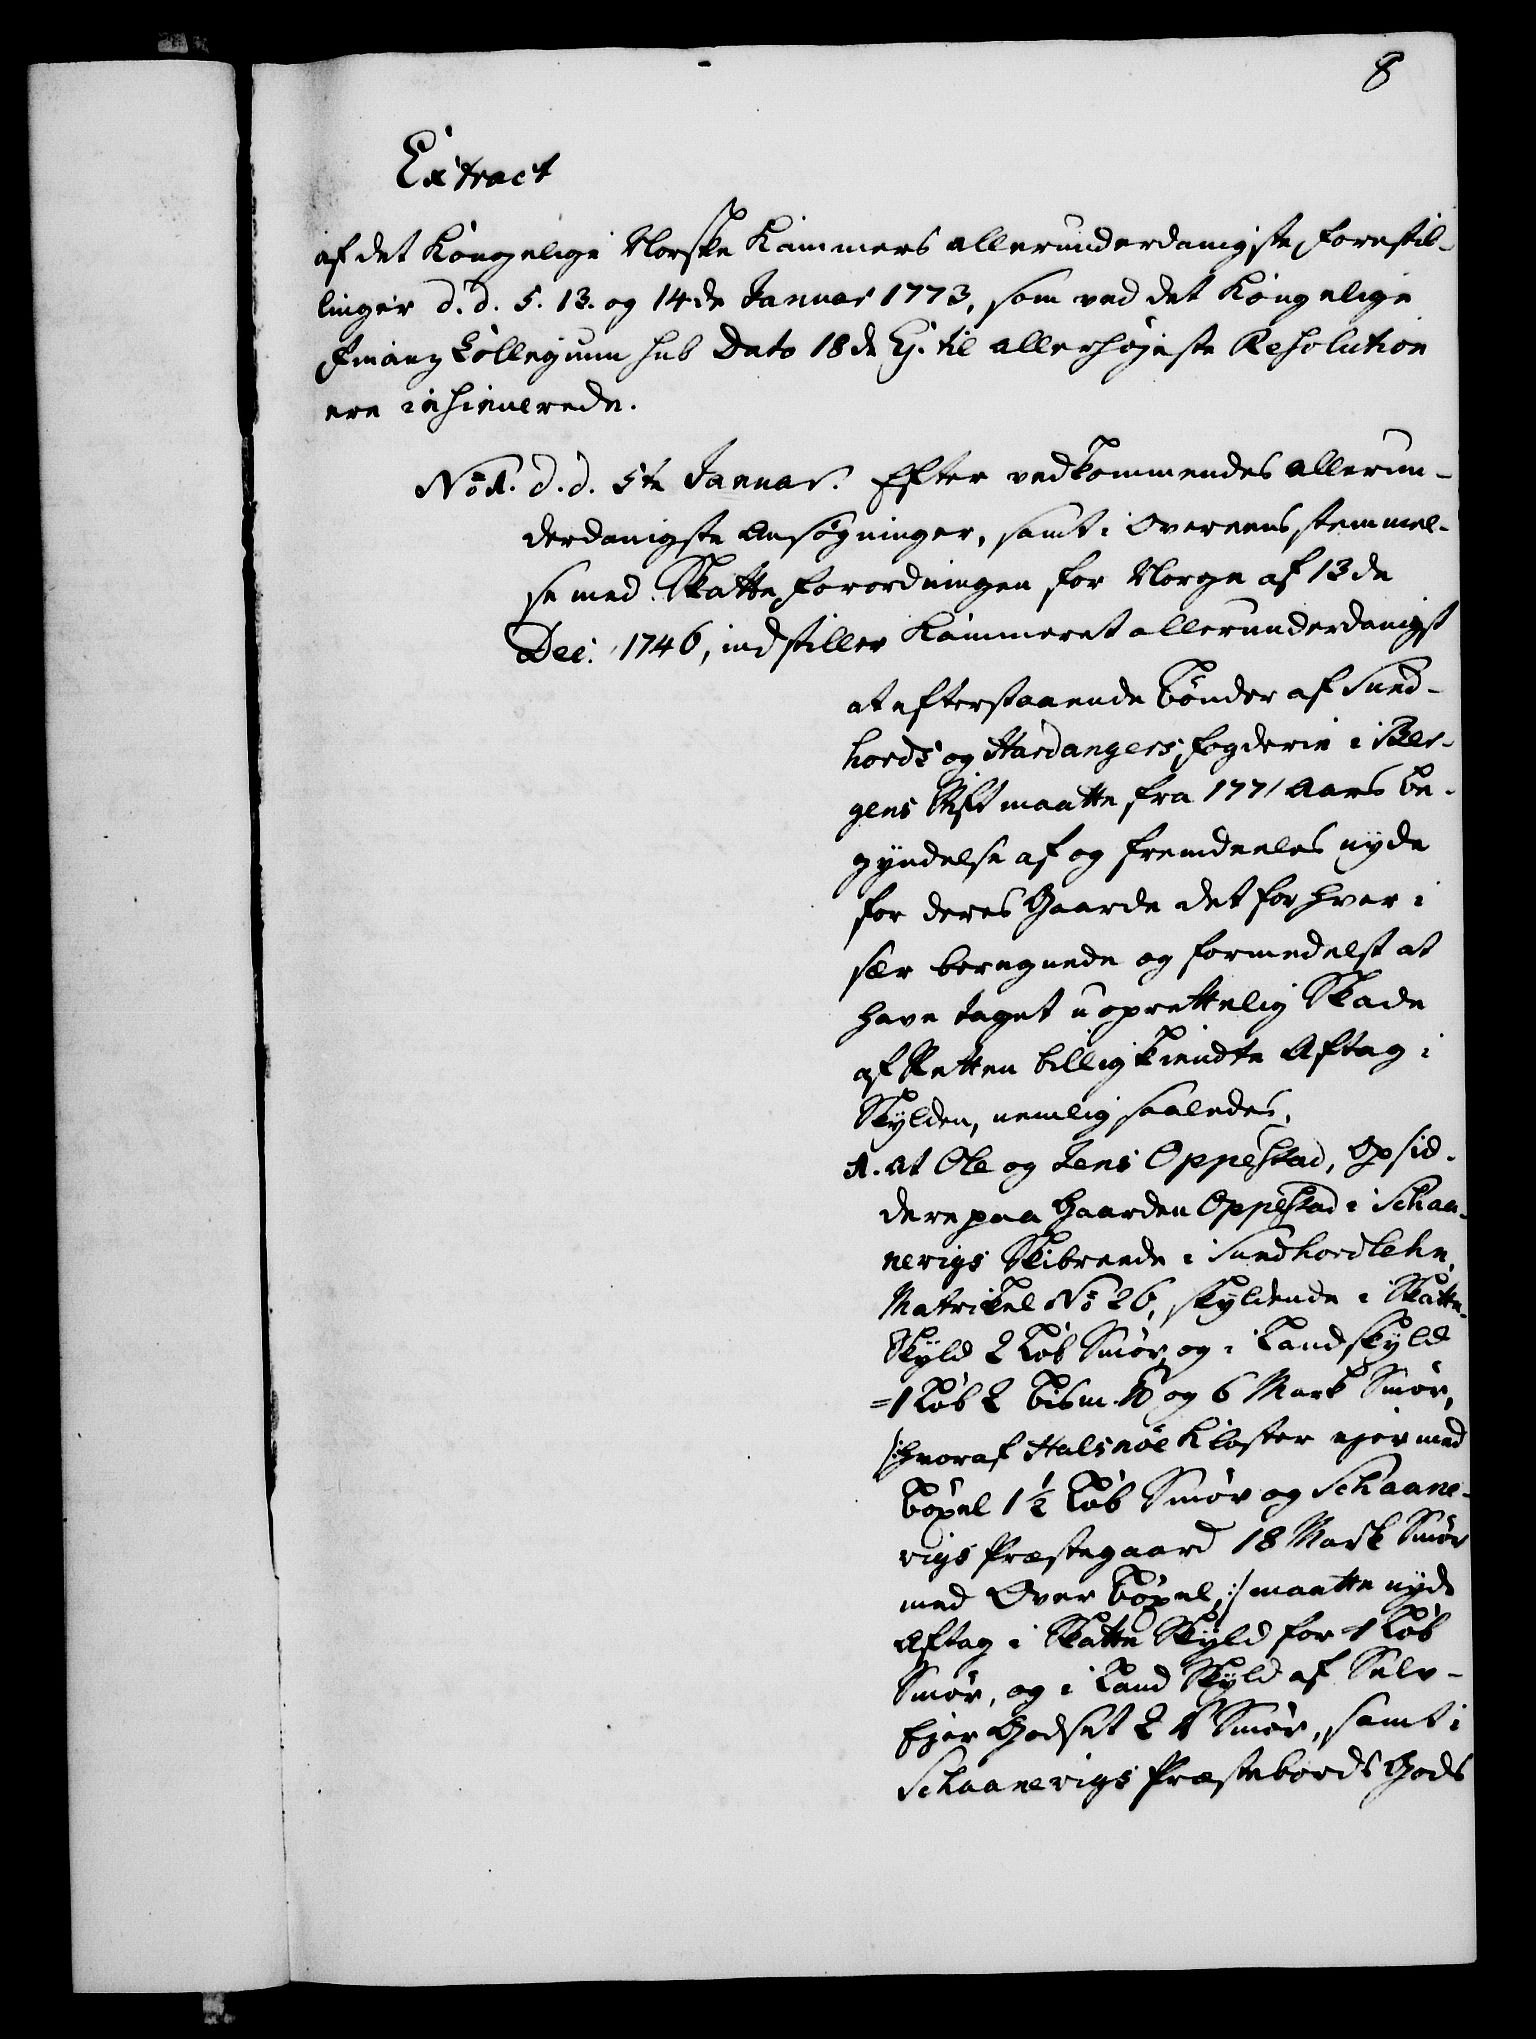 8
Extract
af det Kongelige Norske Kammers allerunderdanigste forestil-
linger d. d. 5. 13. og 14de Januar 1773, som ved det Kongelige
Finanz Collegium sub Dato 18de Ej. til allerhøjeste Resolution
ere insinuerede.
No 1. d. d. 5te Januar. Efter vedkommendes allerun-
derdanigste Ansøgninger, samt i Overeensstemmel-
se med Skatte forordningen for Norge af 13de
Dec: 1746, indstiller Kammeret allerunderdanigst
at efterstaaende bønder af Sund-
hords og Hardangers fogderie i Ber-
gens Stift maatte fra 1771 Aars be-
gyndelse af og fremdeeles nyde
for deres Gaarde det for hver i
sær beregnede og formedelst at
have taget uoprettelig Skade
af Retten billigkiendte Aftag i
Skylden, nemlig saaledes,
1. at Ole og Jens Oppestad, Opsid-
dere paa Gaarden Oppestad i Schaa-
nevigs Skibreede i Sundhordlehn,
Matrikel No 26, skyldende i Skatte-
Skyld 2 Løb Smør, og i Landskyld
=1 Løb 2 bism. ℔ og 6 Mark Smør,
/:hvoraf Halsnøe Kloster ejer med
bøxel 1½ Løb Smør og Schaane-
vigs Præstegaard 18 Mark Smør
med Over bøxel,:/ maatte nyde
Aftag i Skatte Skyld for 1 Løb
Smør, og i Land Skyld af Selv-
Ejer Godset 2 ℔ Smør, samt i
Schaanevigs Præstebords Gods